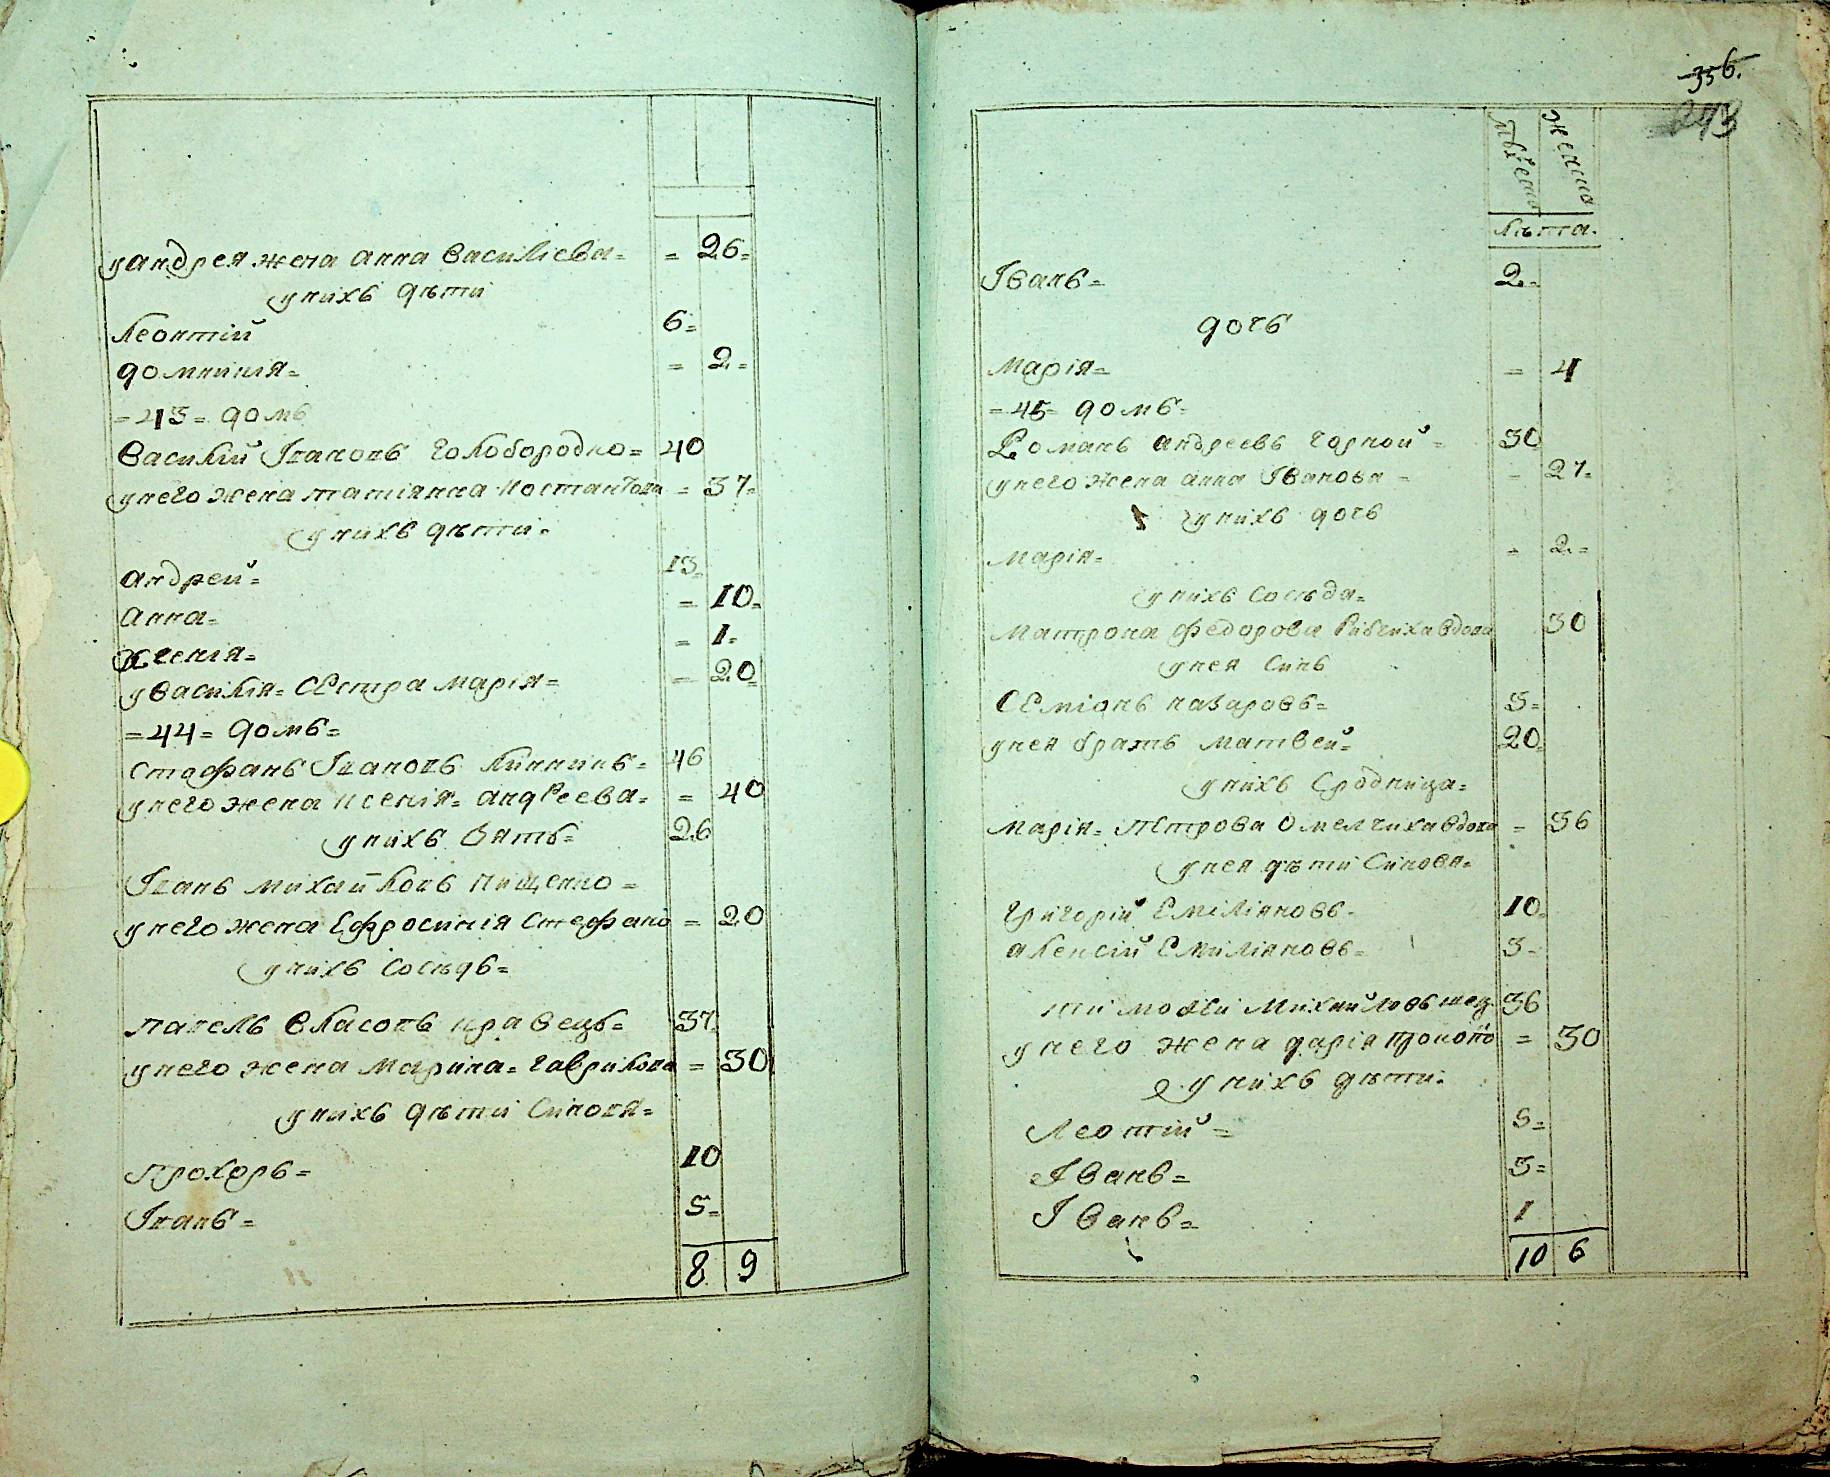 у андрея жена анна василиева = = 26 =
у нихъ дѣти
леонтїй 6 =
домникия = = 2 =
= 43 = домъ
василїй Iвановъ голобородко = 40
у него жена татиянна костантова = 37 =
у нихъ дѣти =
андрей = 13 =
анна = = 10 =
ксенїя = = 1 =
у василїя = сестра марїя = = 20 =
= 44 = домъ =
стефанъ Iвановъ 46
у него жена ксенїя = андреева = = 40
у нихъ зять = 26
Iванъ михайловъ пищенко =
у него жена Ефросинїя стефано = 20
у нихъ сосѣдъ =
павелъ власовъ кравецъ = 37 =
у него жена марина = гаврилова = 30
у нихъ дѣти синовя =
прохоръ = 10
Iванъ = 5 =
8 9
336.
243
мужеска женска
лѣта.
Iванъ = 2 =
дочъ
марїя = = 4
= 45 = домъ =
Романъ андреевъ чорной = 30
у него жена анна Iванова = = 27 =
у нихъ дочъ
марїя = = 2 =
у нихъ сосѣда =
матрона федорова вдова 30
у нея синъ
семїонъ назаровъ = 3 =
у нея братъ матвей = 20 =
у нихъ сродница =
марїя = петрова омелчиха вдова = 36
у нея дѣти синовя =
григорїй емилїяновъ = 10 =
алексїй емилїяновъ = 3 =
тимофей михайловъ швец 36
у него жена дарїя прокопо = 30
у нихъ дѣти =
леотїй = 5 =
Iванъ = 3 =
Iванъ = 1
10 6